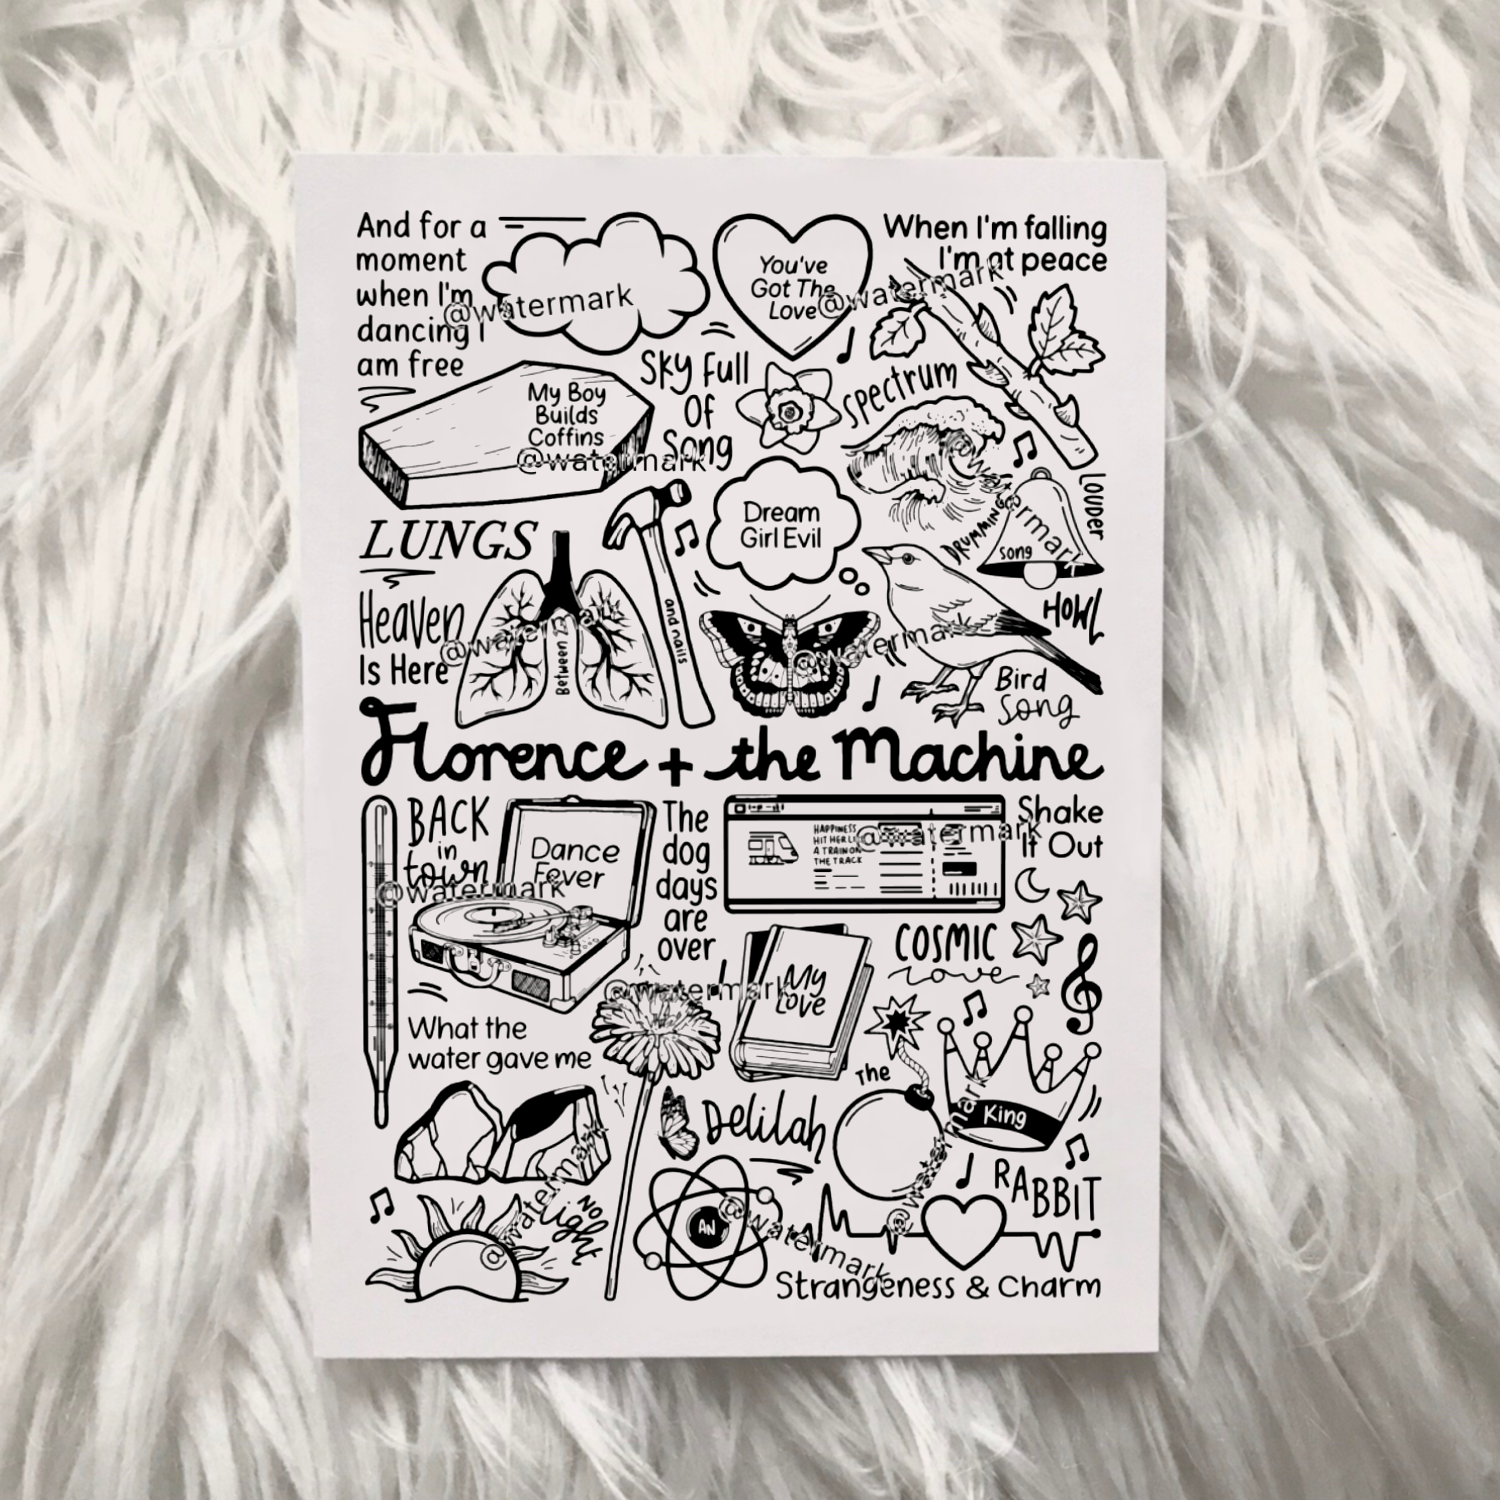 And for a
moment
when I'm
dancing I
am free
@watermark
You've
Got The
Love
@watermark
When I'm falling
I'm at peace
My Boy
Builds
Coffins
@watermark
Sky Full
Of
Song
Spectrum
@watermark
LOUDER
DRUMMING
song
Dream
Girl Evil
LUNGS
Heaven
Is Here
@watermark
Between 2
and nails
@watermark
HOWL
Bird
Song
Florence + the Machine
BACK
in
town
@watermark
Dance
Fever
The
dog
days
are
over
HAPPINESS
HIT HER LI
A TRAIN ON
THE TRACK
@watermark
Shake
It Out
COSMIC
Love
@watermark
My
Love
What the
water gave me
The
King
Delilah
RABBIT
@watermark
No
Light
@watermark
AN
@watermark
Strangeness & Charm